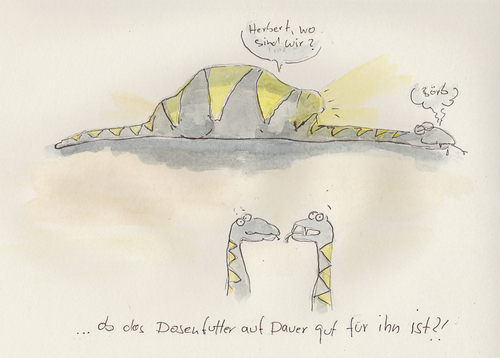 Herbert, wo
sind wir?
Börb
... ob das Dosenfutter auf Dauer gut für ihn ist?!